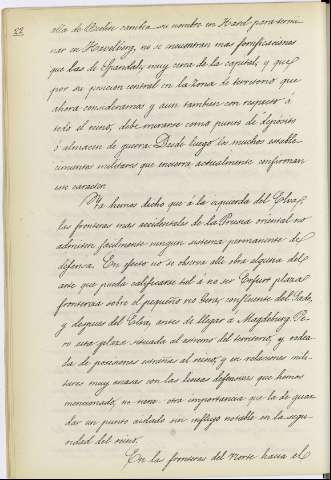 22
allá de Berlin cambia su nombre en Havel para termi-
nar en Havelberg, no se encuentran mas fortificaciones
que las de Spandau, muy cerca de la capital, y que
por su posicion central en la zona de territorio que
ahora consideramos y aun tambien con respecto á
todo el reino, debe mirarse como punto de depósito
ó almacen de guerra. Desde luego los muchos estable-
cimientos militares que encierra actualmente confirman
este caracter.
Ya hemos dicho que á la izquierda del Elva,
las fronteras mas occidentales de la Prusia oriental no
admiten facilmente ningun sistema permanente de
defensa. En efecto no se observa alli obra alguna del
arte que pueda calificarse tal á no ser Erfurt plaza
fronteriza sobre el pequeño rio Gera, confluente del Sala,
y despues del Elva, antes de llegar a Magdeburg. Pe-
ro esta plaza situada al estremo del territorio, y rodea-
da de posesiones estrañas al reino, y en relaciones mili-
tares muy escasas con las lineas defensivas que hemos
mencionado, no tiene otra importancia que la de guar-
dar un punto aislado sin influjo notable en la segu-
ridad del reino.
En las fronteras del Norte hacia el